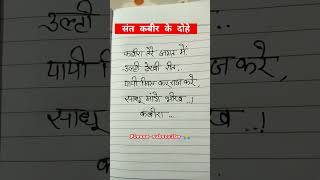 संत कबीर के दोहे
उल्टी
कबीरा तेरे जगत में
उल्टी देखी रीत,
पापी मिल कर राज करे,
साधू मांगे भीख ..!
कबीरा ...
Please subscribe 🙏